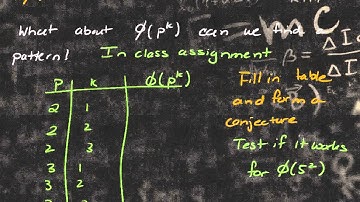 What about φ(pᵏ) can we find a
pattern! In class assignment
P k φ(pᵏ)
2 1
2 2
2 3
3 1
3 2
Fill in table
and form a
conjecture
Test if it works
for φ(5²)